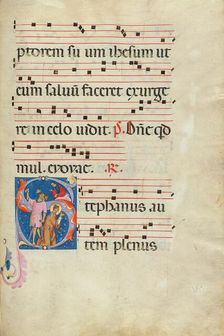 ptorem su um ihesum ut
eum saluū faceret exurge
re in celo uidit. P. Dn̄e qd
mul. R.
Stephanus au
tem plenus